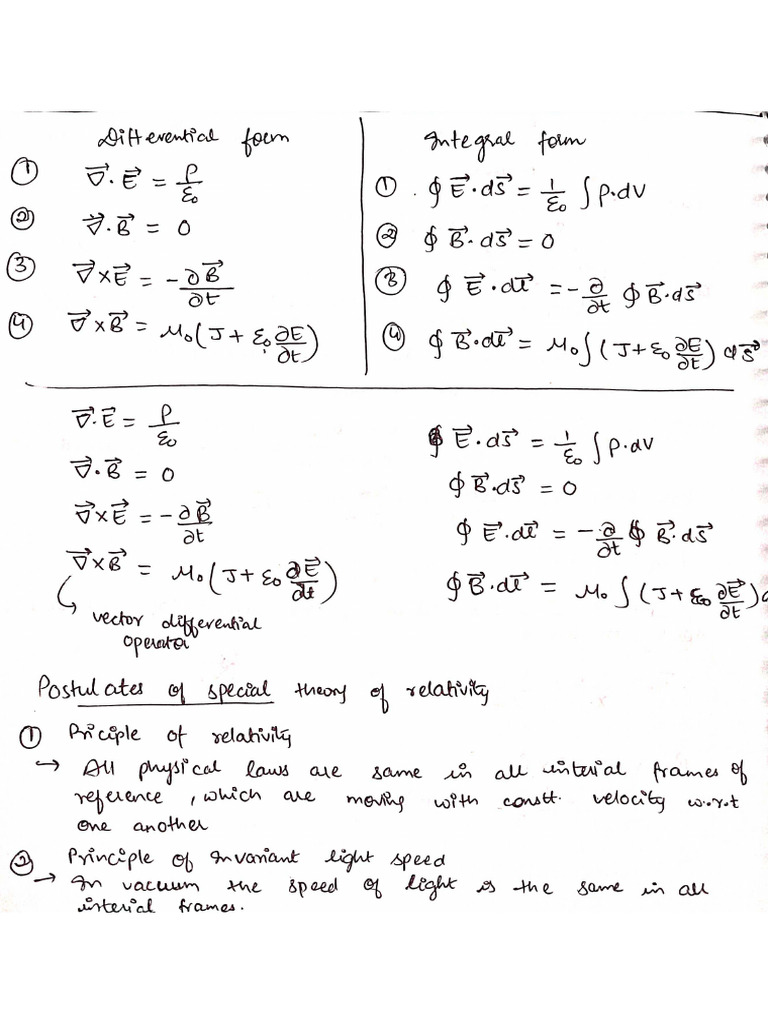 Differential form
① ∇⃗·E⃗ = ρ/ε₀
② ∇⃗·B⃗ = 0
③ ∇⃗×E⃗ = -∂B⃗/∂t
④ ∇⃗×B⃗ = μ₀(J + ε₀ ∂E/∂t)
Integral form
① ∮ E⃗·ds⃗ = 1/ε₀ ∫ρ·dV
② ∮ B⃗·ds⃗ = 0
③ ∮ E⃗·dl⃗ = -∂/∂t ∮B⃗·ds⃗
④ ∮ B⃗·dl⃗ = μ₀∫(J+ε₀ ∂E/∂t) ds⃗
∇⃗·E⃗ = ρ/ε₀
∇⃗·B⃗ = 0
∇⃗×E⃗ = -∂B⃗/∂t
∇⃗×B⃗ = μ₀(J + ε₀ ∂E⃗/∂t)
vector differential
operator
∮ E⃗·ds⃗ = 1/ε₀ ∫ρ·dV
∮ B⃗·ds⃗ = 0
∮ E⃗·dl⃗ = -∂/∂t ∮ B⃗·ds⃗
∮ B⃗·dl⃗ = μ₀ ∫(J+ε₀ ∂E⃗/∂t)
Postulates of special theory of relativity
① Priciple of relativity
→ All physical laws are same in all interial frames of
reference, which are moving with constt. velocity w.r.t
one another
② Principle of Invariant light speed
→ In vacuum the speed of light is the same in all
interial frames.